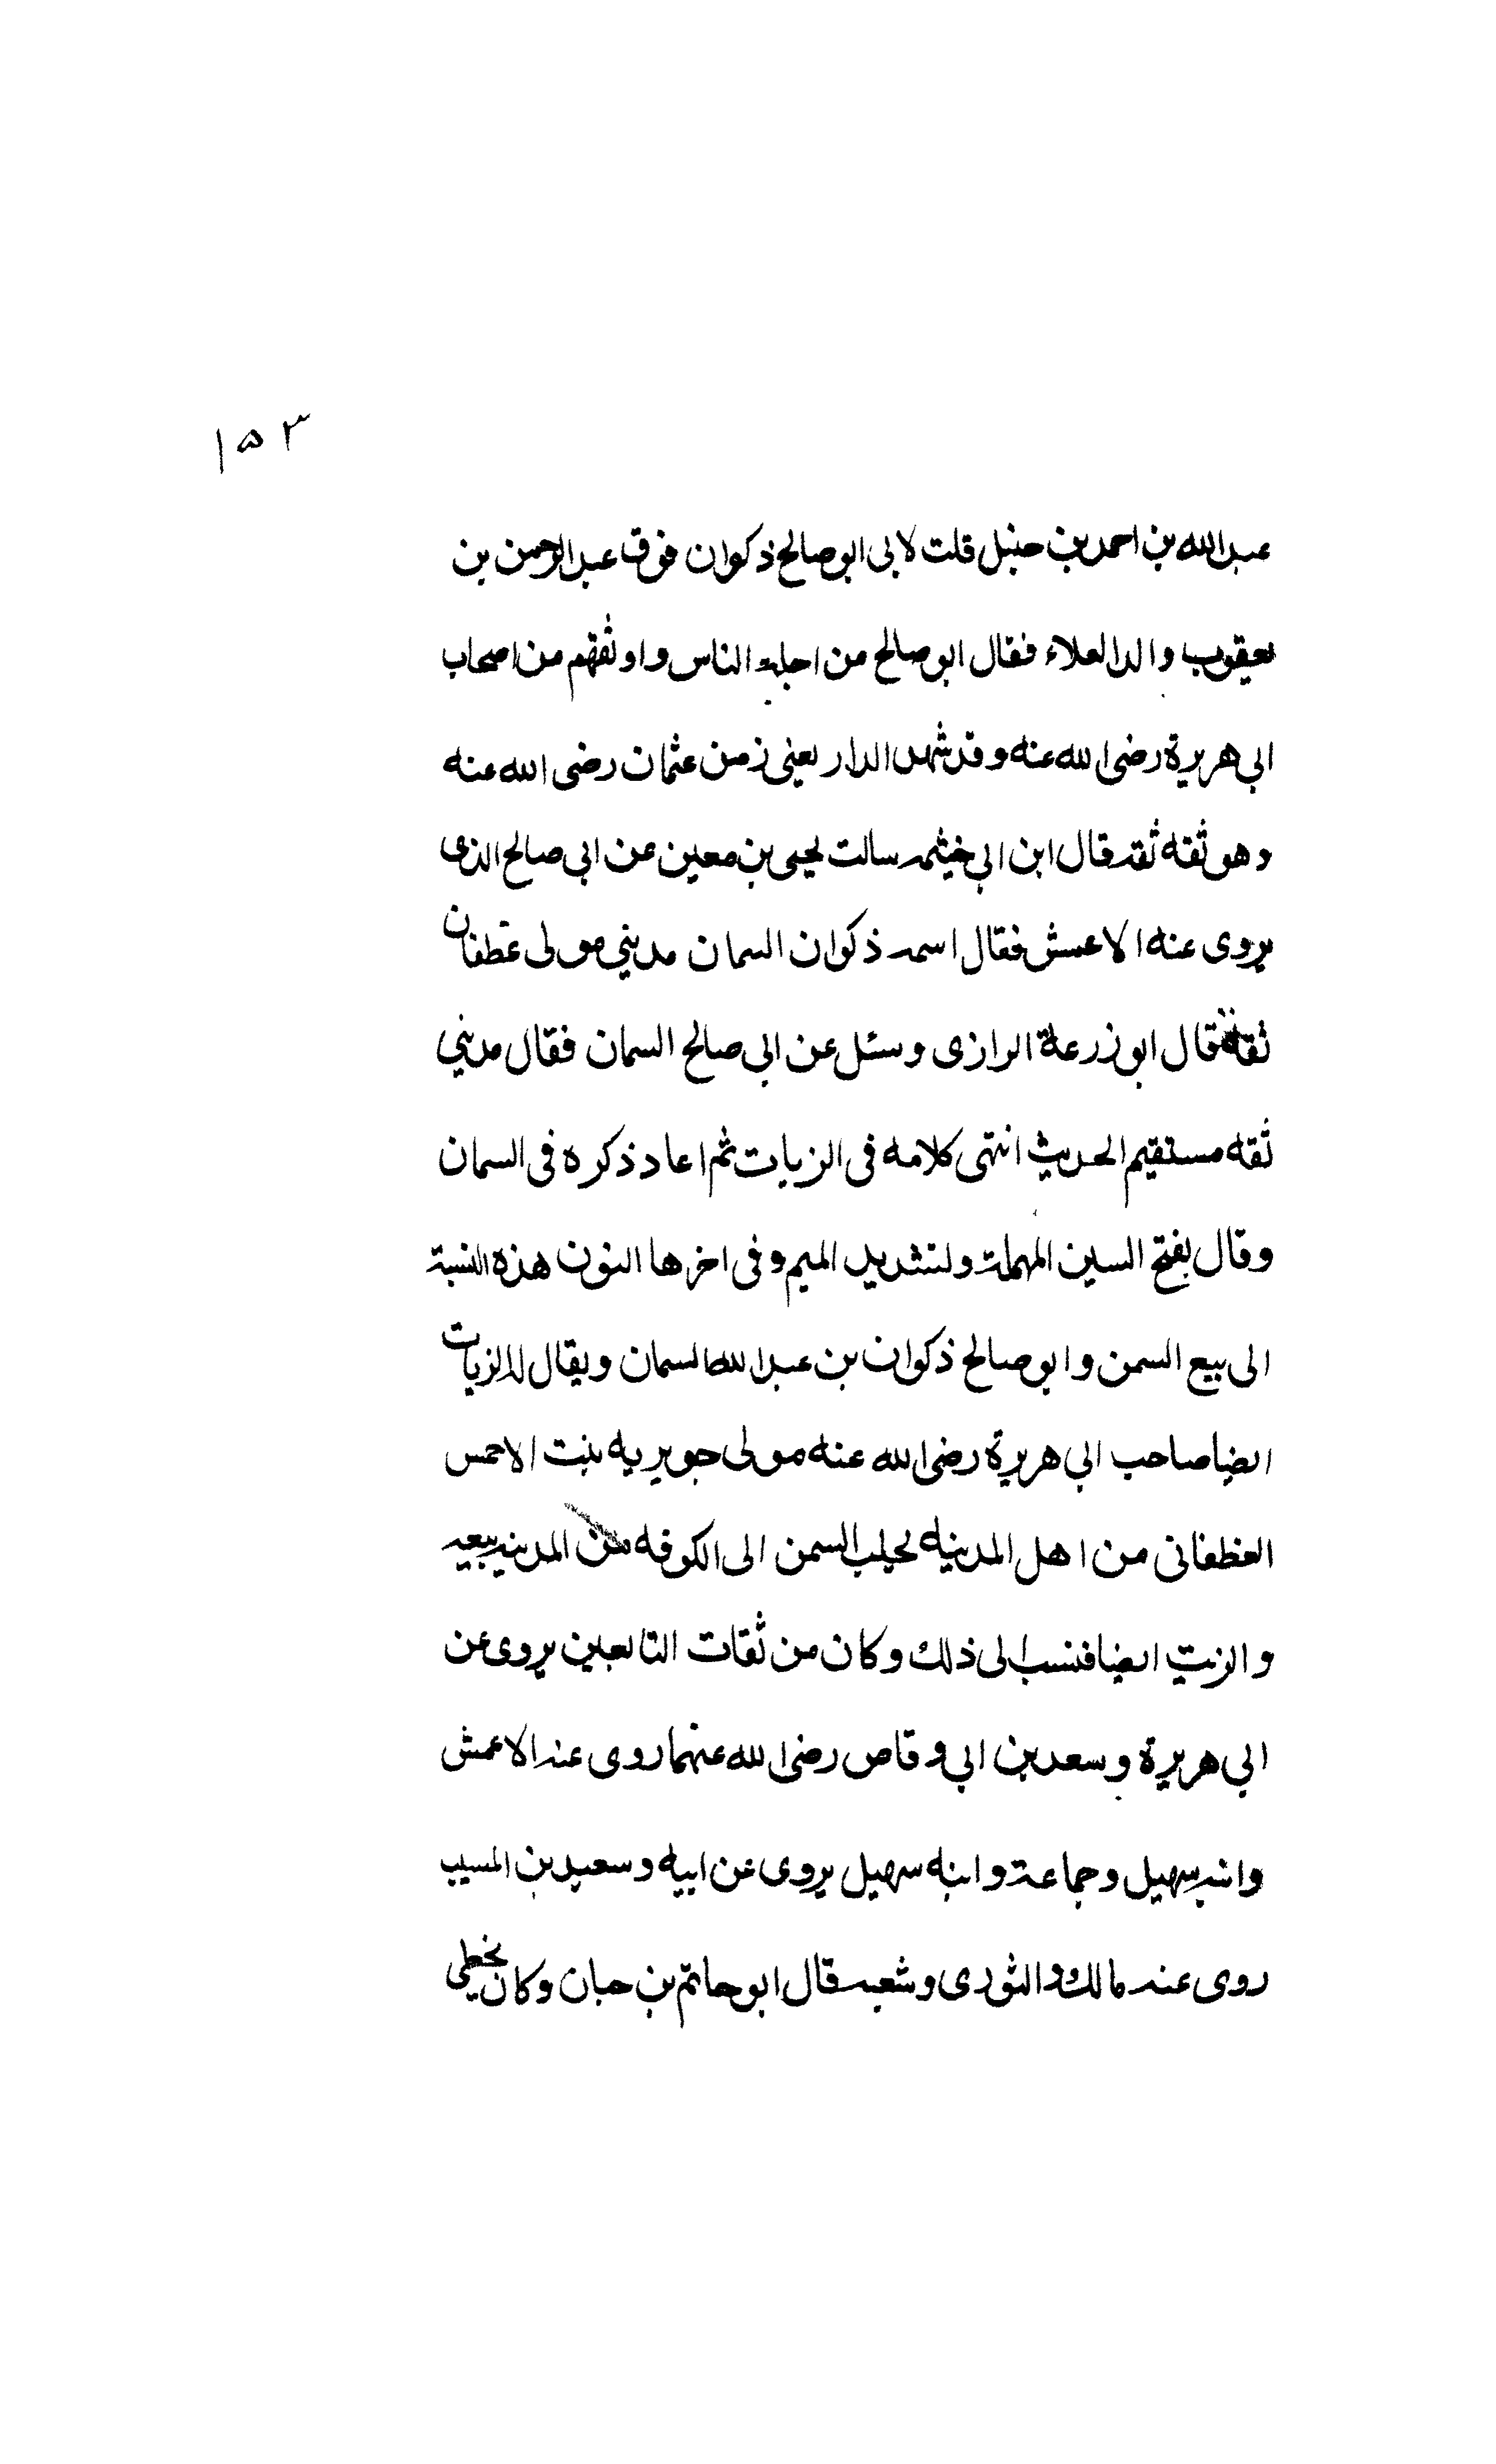 ١٥٣
عبدالله بن احمد بن حنبل قلت لابى ابو صالح ذكوان فوق عبدالرحمن بن
يعقوب والد العلاء فقال ابو صالح من اجلة الناس واوثقهم من اصحاب
ابي هريرة رضى الله عنه وقد شهد الدار يعنى زمن عثمان رضى الله عنه
وهو ثقه ثقه قال ابن ابي خيثمه سالت يحيى بن معين عن ابى صالح الذى
يروى عنه الاعمش فقال اسمه ذكوان السمان مديني مولى غطفان
ثقة قال ابو زرعة الرازى وسئل عن ابي صالح السمان فقال مديني
ثقه مستقيم الحديث انتهى كلامه فى الزيات ثم اعاد ذكره فى السمان
وقال بفتح السين المهملة ولتشديد الميم وفى اخرها النون هذه النسبة
الى بيع السمن وابو صالح ذكوان بن عبدالله السمان ويقال له الزيات
ايضا صاحب ابي هريرة رضى الله عنه مولى جويريه بنت الاحمس
الغطفانى من اهل المدينه يجلب السمن الى الكوفه من المدينه يبيعه
والزيت ايضا فنسب الى ذلك وكان من ثقات التابعين يروى عن
ابي هريرة وسعد بن ابي وقاص رضى الله عنهما روى عنه الاعمش
وابنه سهيل وجماعة وابنه سهيل يروى عن ابيه وسعيد بن المسيب
روى عنه مالك والثورى وشعبه قال ابو حاتم بن حبان وكان يخطي